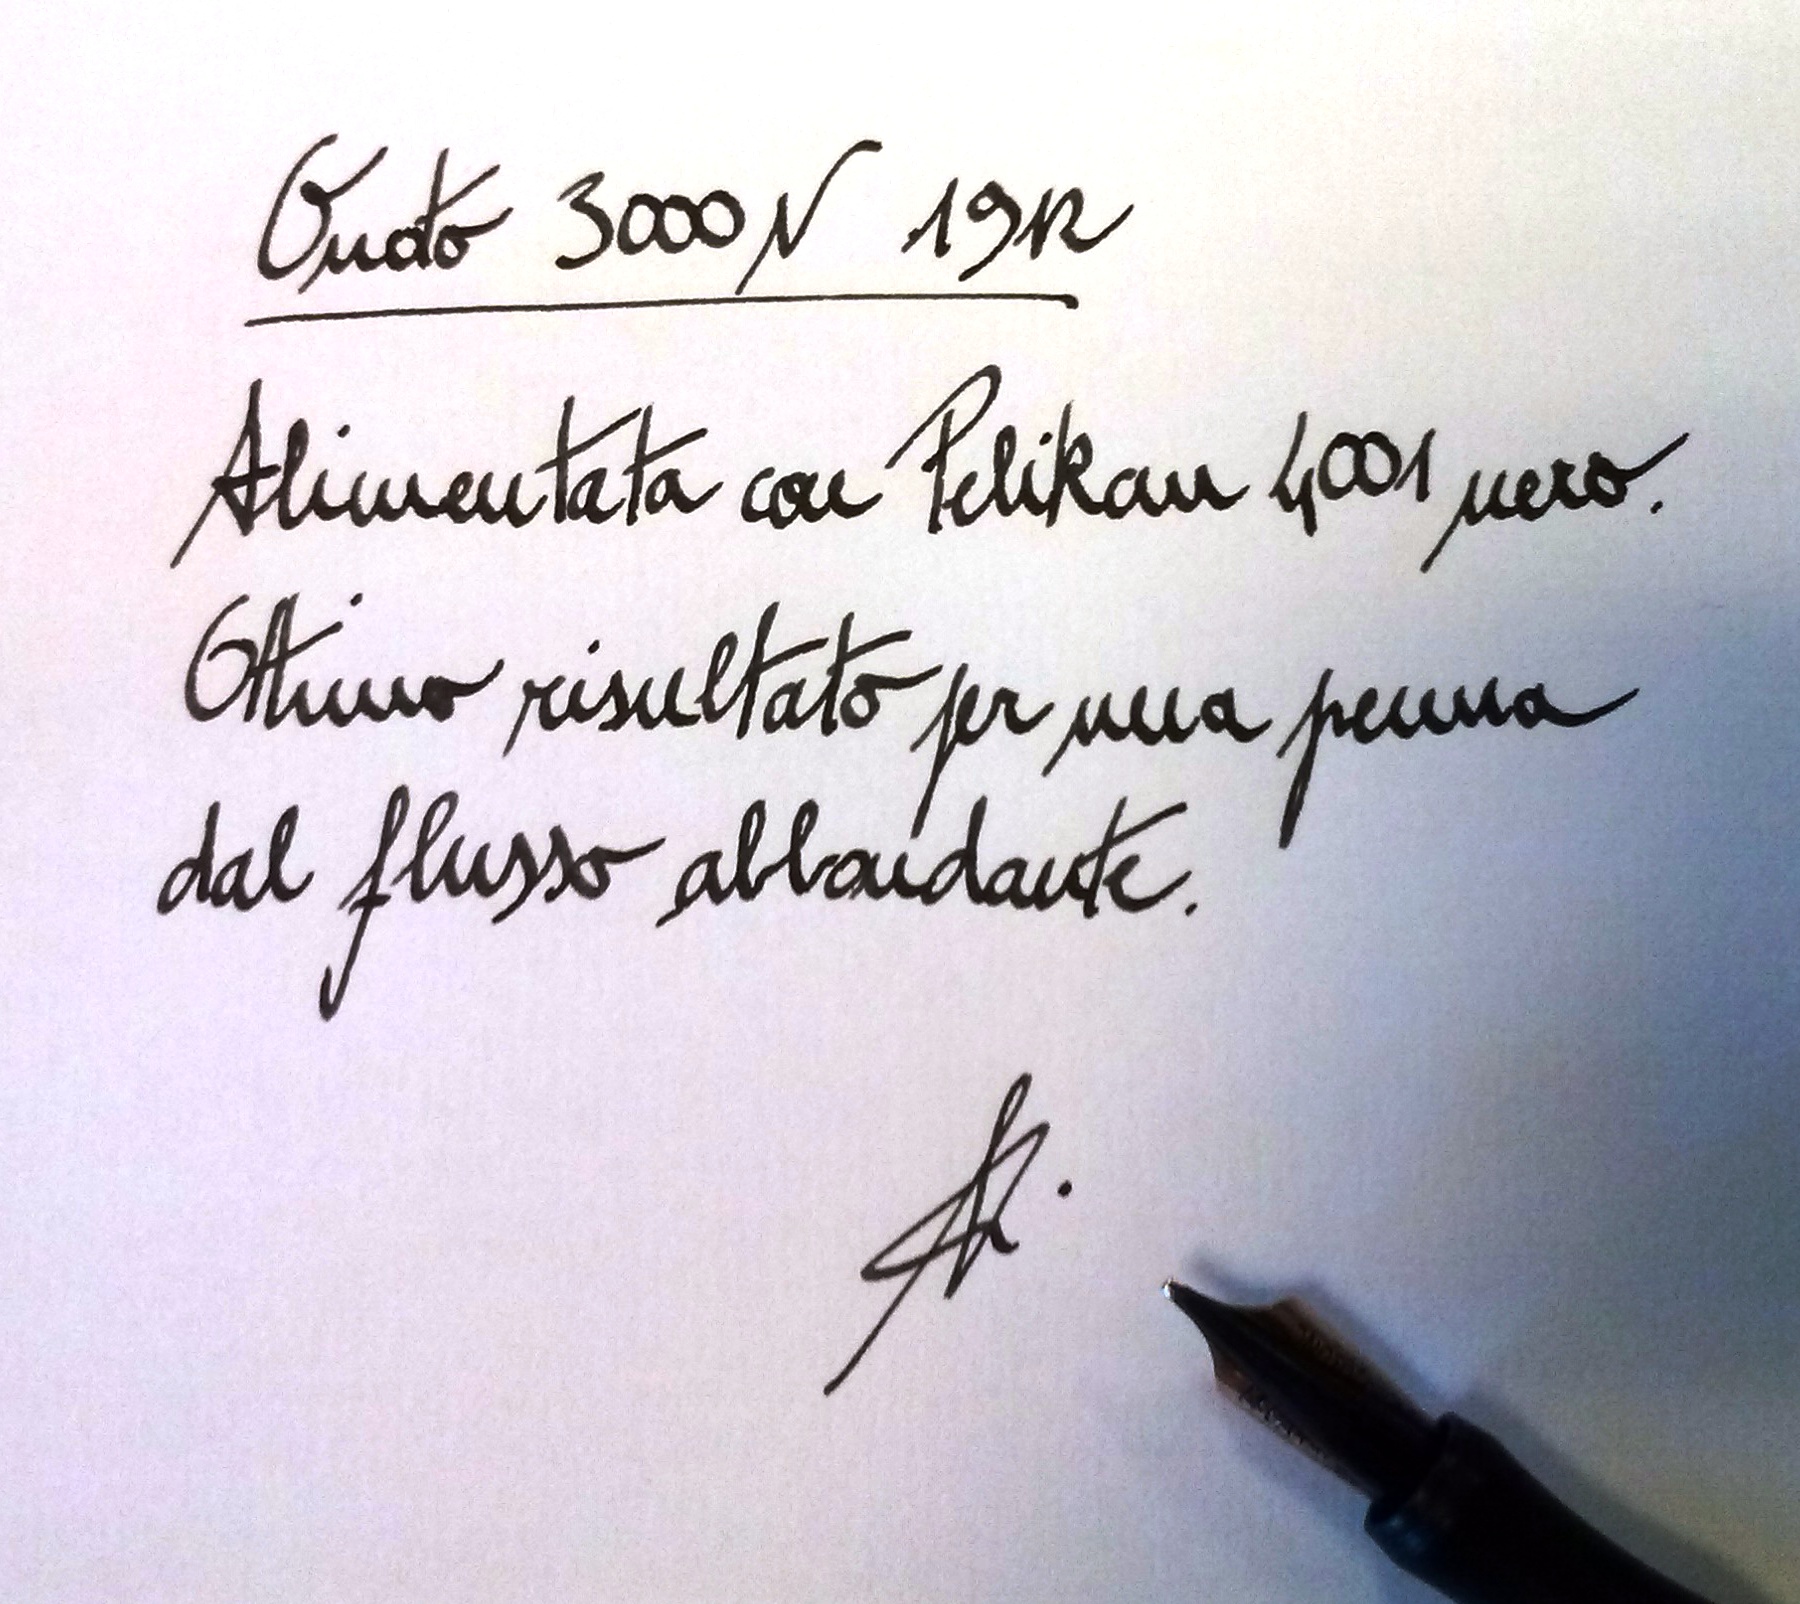 Onoto 3000 N 1912
Alimentata con Pelikan 4001 nero.
Ottimo risultato per una penna
dal flusso abbondante.